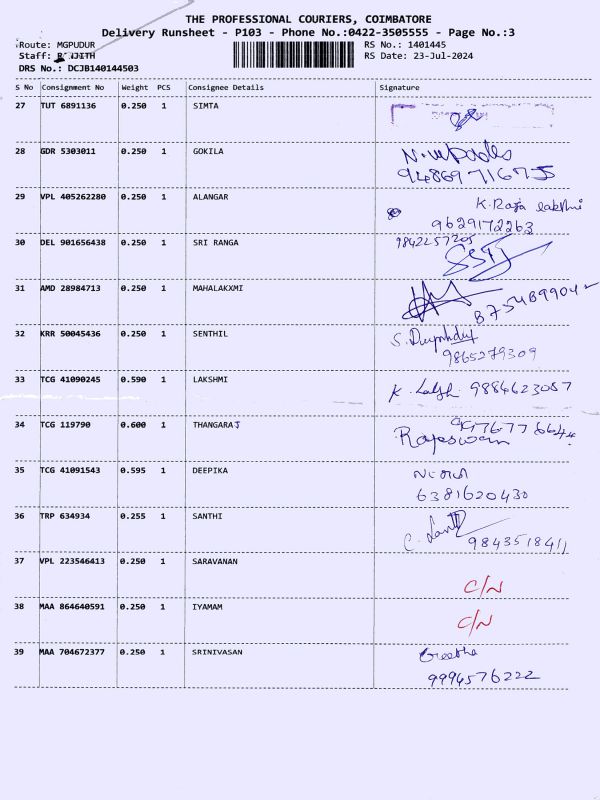 THE PROFESSIONAL COURIERS, COIMBATORE
Delivery Runsheet - P103 - Phone No.:0422-3505555 - Page No.:3
Route: MGPUDUR
RS No.: 1401445
Staff:
RS Date: 23-Jul-2024
DRS No.: DCJB140144503
S No Consignment No Weight PCS Consignee Details Signature
27 TUT 6891136 0.250 1 SIMTA
28 GDR 5303011 0.250 1 GOKILA
29 VPL 405262280 0.250 1 ALANGAR
K. Raja lakshmi
9629172263
30 DEL 901656438 0.250 1 SRI RANGA
31 AMD 28984713 0.250 1 MAHALAKXMI
32 KRR 50045436 0.250 1 SENTHIL
9865279309
33 TCG 41090245 0.590 1 LAKSHMI
9884623057
34 TCG 119790 0.600 1 THANGARAJ
Rajeswari
35 TCG 41091543 0.595 1 DEEPIKA
6381620430
36 TRP 634934 0.255 1 SANTHI
9843518411
37 VPL 223546413 0.250 1 SARAVANAN
C/N
38 MAA 864640591 0.250 1 IYAMAM
C/N
39 MAA 704672377 0.250 1 SRINIVASAN
Geetha
9994576222